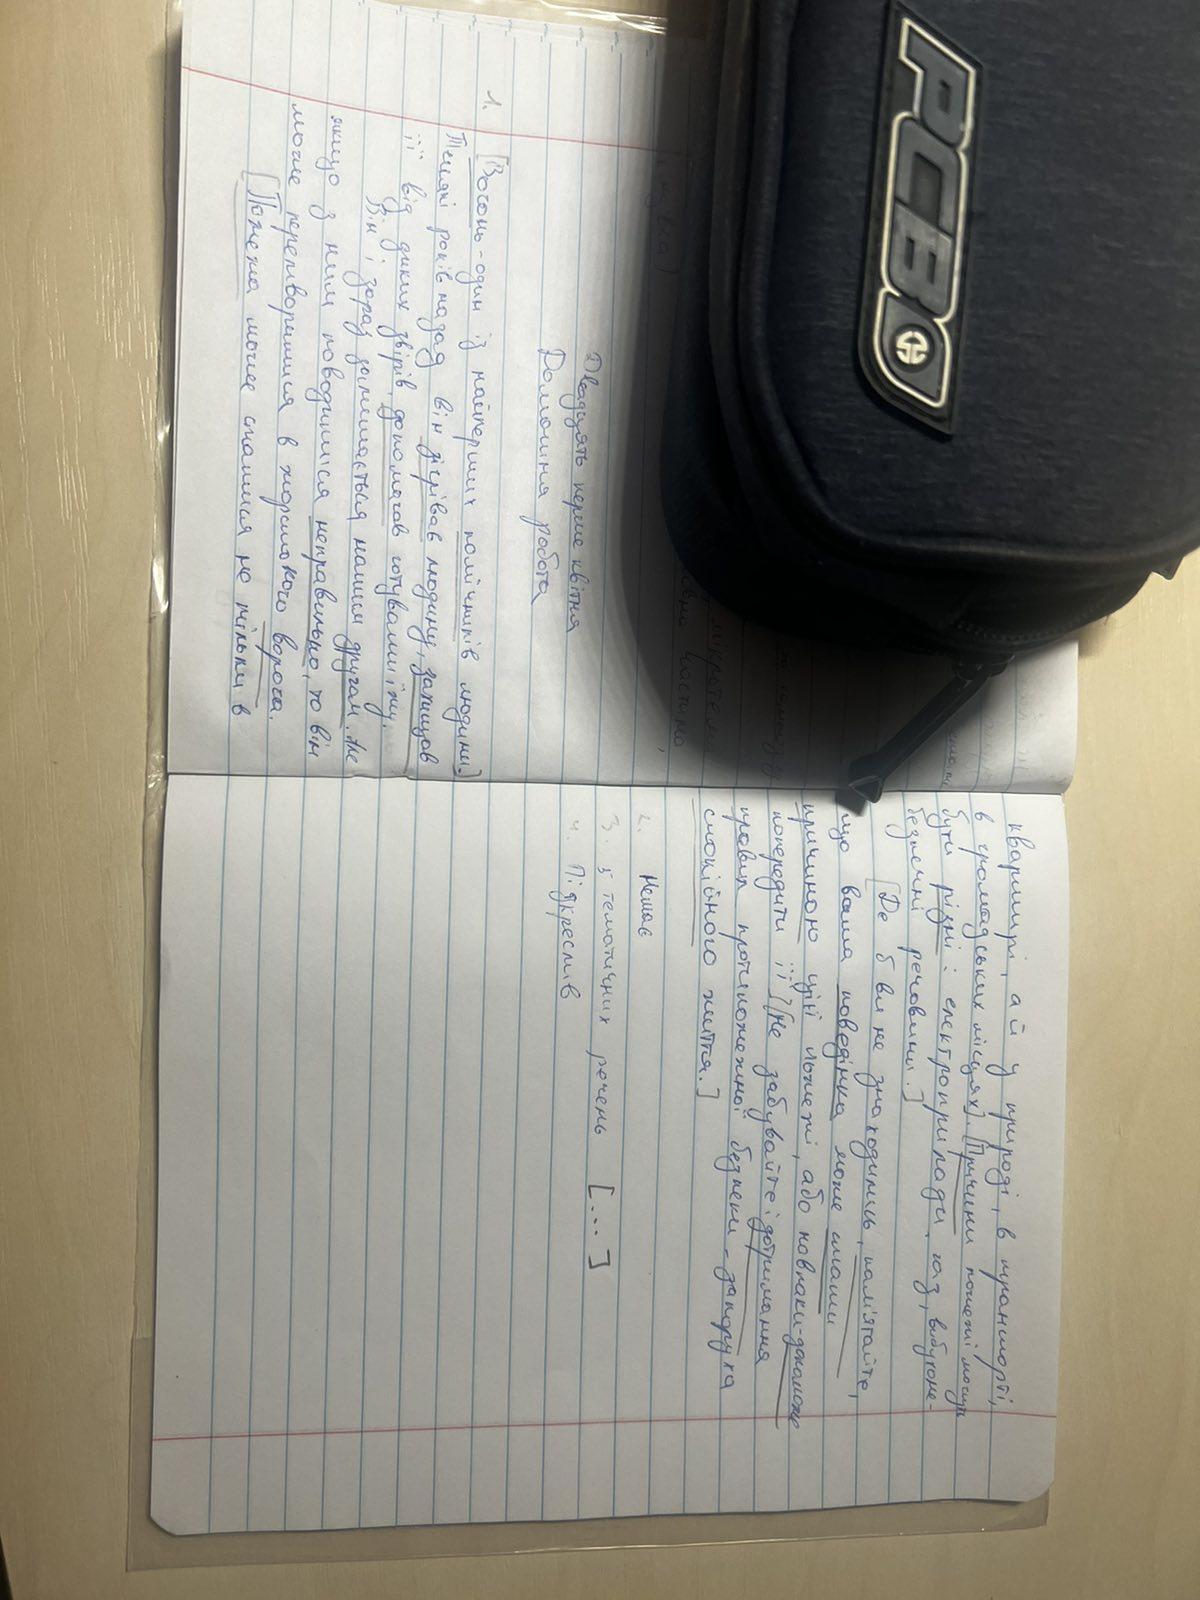 PCBO
Двадцять перше квітня
Домашня робота
1. [Вогонь - один із найперших помічників людини.]
Тисячі років назад він зігрівав людину, захищав
її від диких звірів, допомагав готувати їжу.
Він і зараз залишається нашим другом. Але
якщо з ним поводитися неправильно, то він
може перетворитися в жорстокого ворога.
[Пожежа може статися не тільки в
квартирі, а й у природі, в транспорті,
в громадських місцях]. [Причини пожежі можуть
бути різні: електроприлади, газ, вибухоне-
безпечні речовини.]
[Де б ви не знаходились, пам'ятайте,
що ваша поведінка може стати
причиною цієї пожежі, або навпаки - допоможе
попередити її.] [Не забувайте: дотримання
правил протипожежної безпеки - запорука
спокійного життя.]
2. Немає
3. 5 тематичних речень [...]
4. Підкреслів